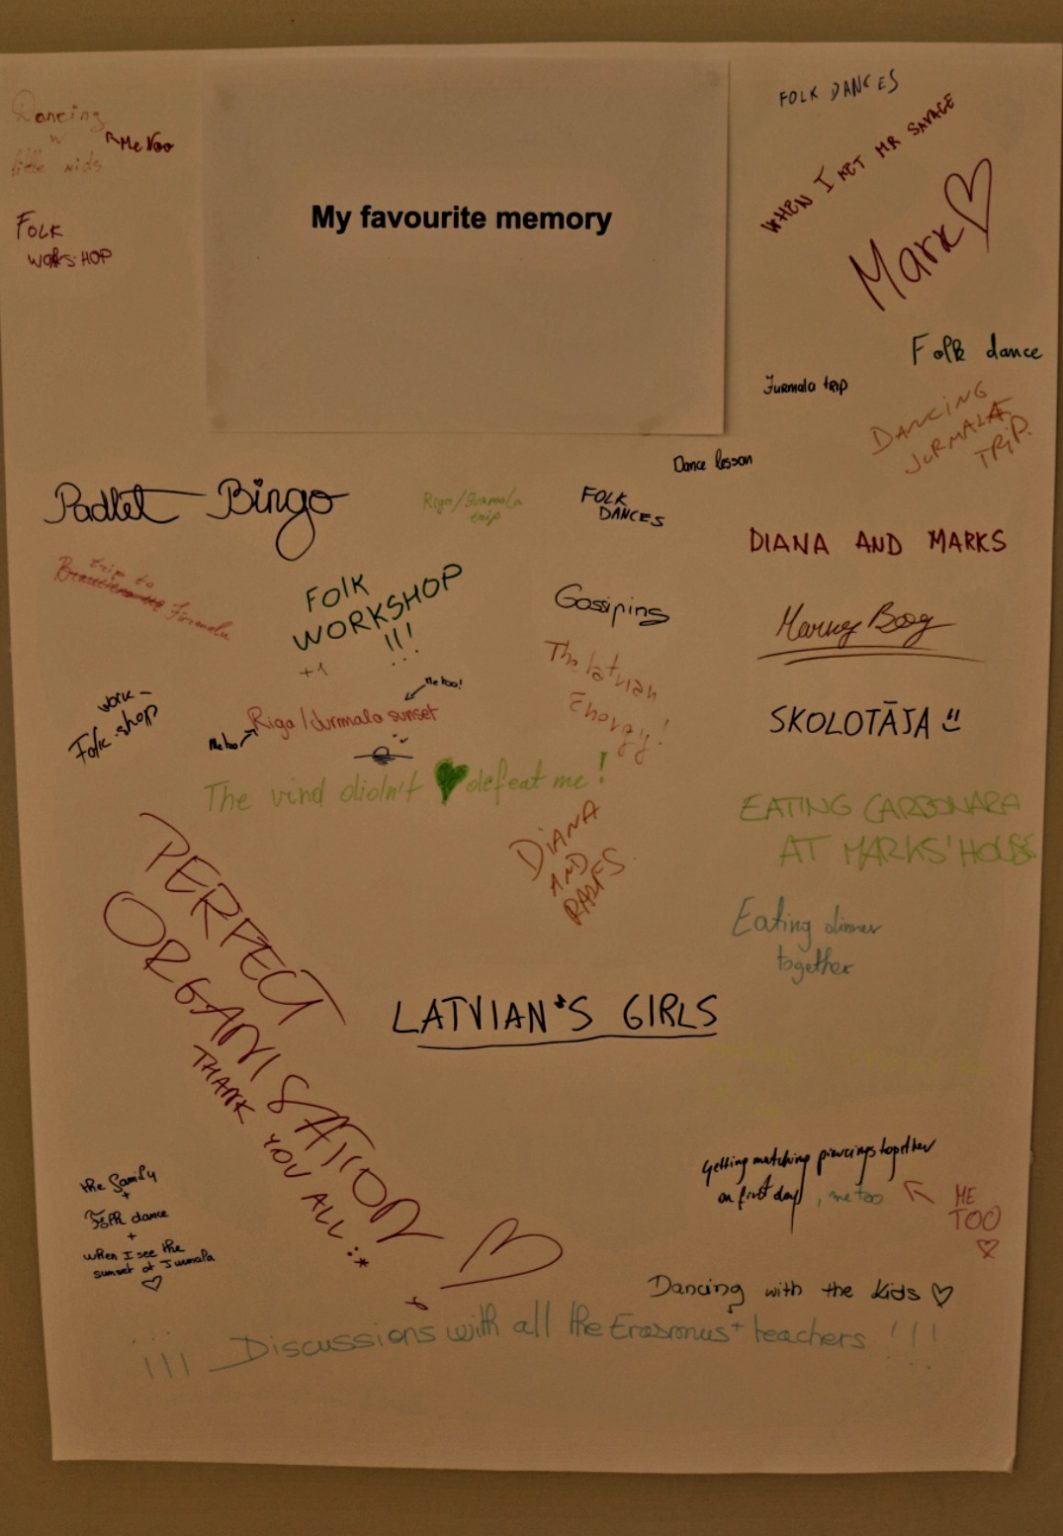 My favourite memory
Dancing
w
little kids
Me too
FOLK
WORKSHOP
FOLK DANCES
WHEN I MET MR SAVAGE
Mark
Folk dance
Jurmala trip
DANCING
JURMALA
TRIP.
Dance lesson
Padlet Bingo
Riga/Jurmala
trip
FOLK
DANCES
DIANA AND MARKS
trip to
Jurmala
FOLK
WORKSHOP
!!!
+1
Gossiping
The latvian
Energy!
SKOLOTĀJA
work-
Folk shop
Me too!
Riga/Jurmala sunset
Me too
The vind didn't defeat me!
DIANA
AND
EATING CARBONARA
AT MARKS' HOUSE
Eating dinner
together
PERFECT
ORGANISATION
THANK YOU ALL :*
LATVIAN'S GIRLS
Getting matching piercings together
on first day, me too
ME
TOO
the family
+
Folk dance
+
when I see the
sunset at Jurmala
Dancing with the kids
¡¡¡ Discussions with all the Erasmus+ teachers !!!